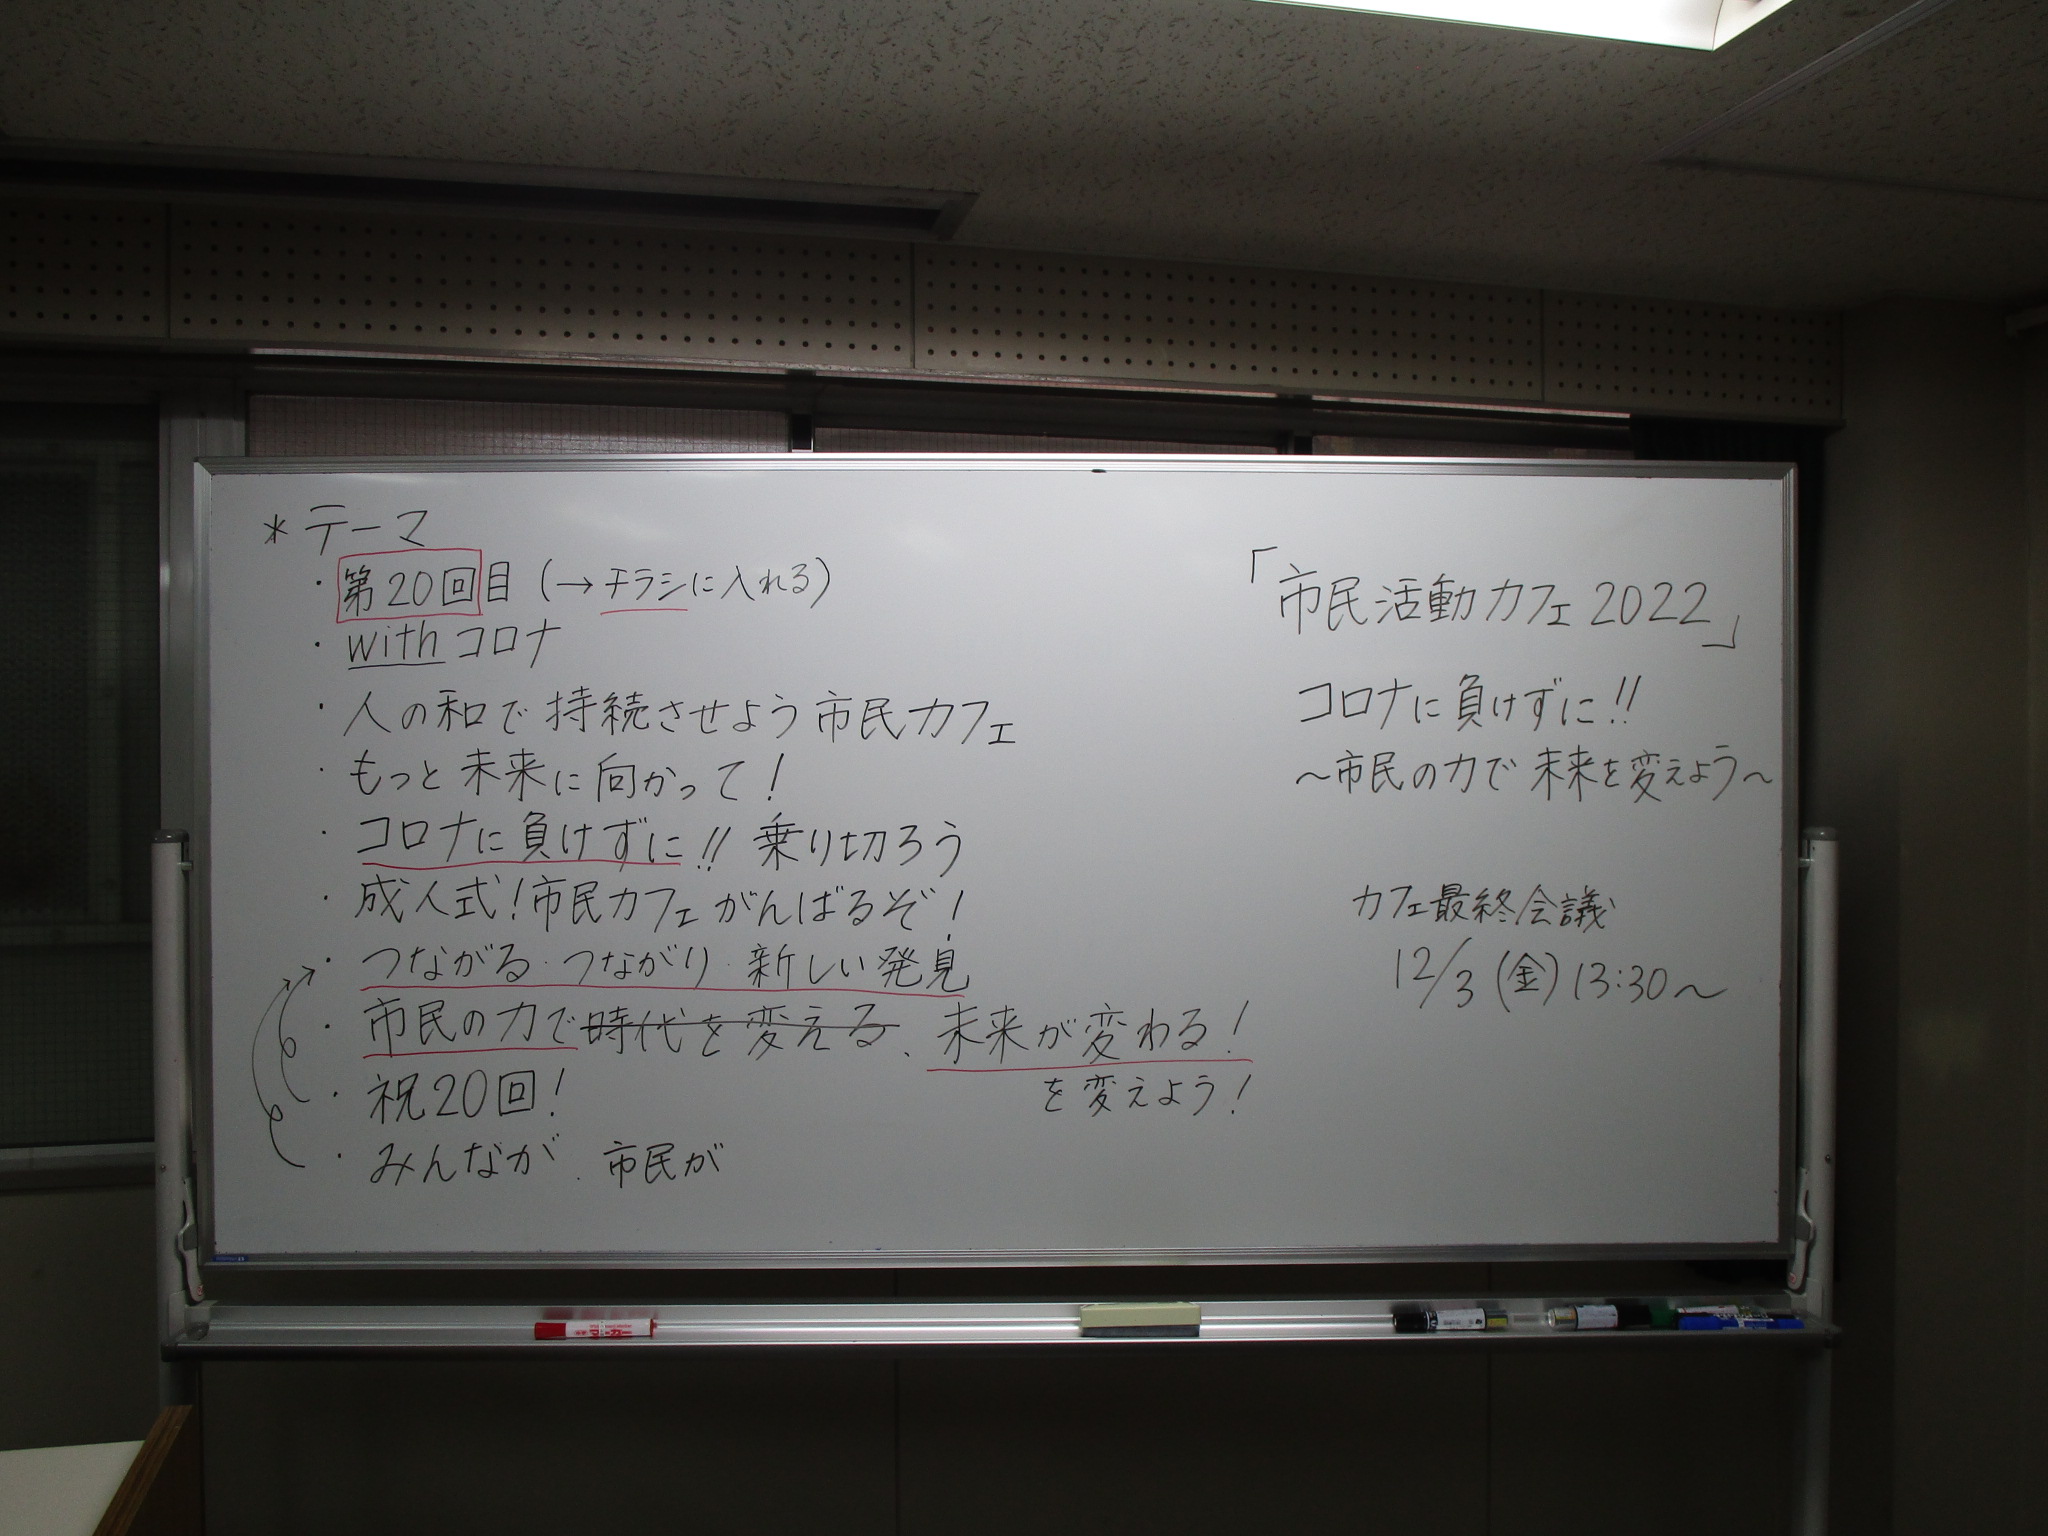 * テーマ
・第20回目 (→チラシに入れる)
・withコロナ
・人の和で持続させよう市民カフェ
・もっと未来に向かって!
・コロナに負けずに!! 乗り切ろう
・成人式!市民カフェがんばるぞ!
・つながる・つながり・新しい発見
・市民の力で時代を変える、未来が変わる!
を変えよう!
・祝20回!
・みんなが、市民が
「市民活動カフェ2022」
コロナに負けずに!!
～市民の力で未来を変えよう～
カフェ最終会議
12/3(金)13:30～